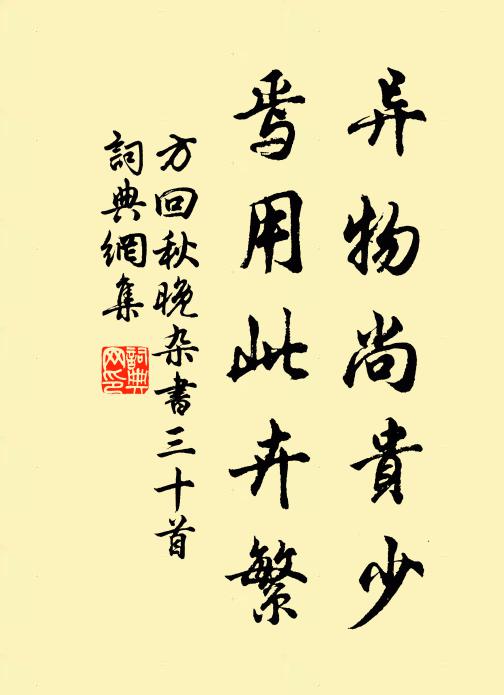 异物尚貴少
焉用此卉繁
方回秋晚杂書三十首
詞典網集
詞典网印